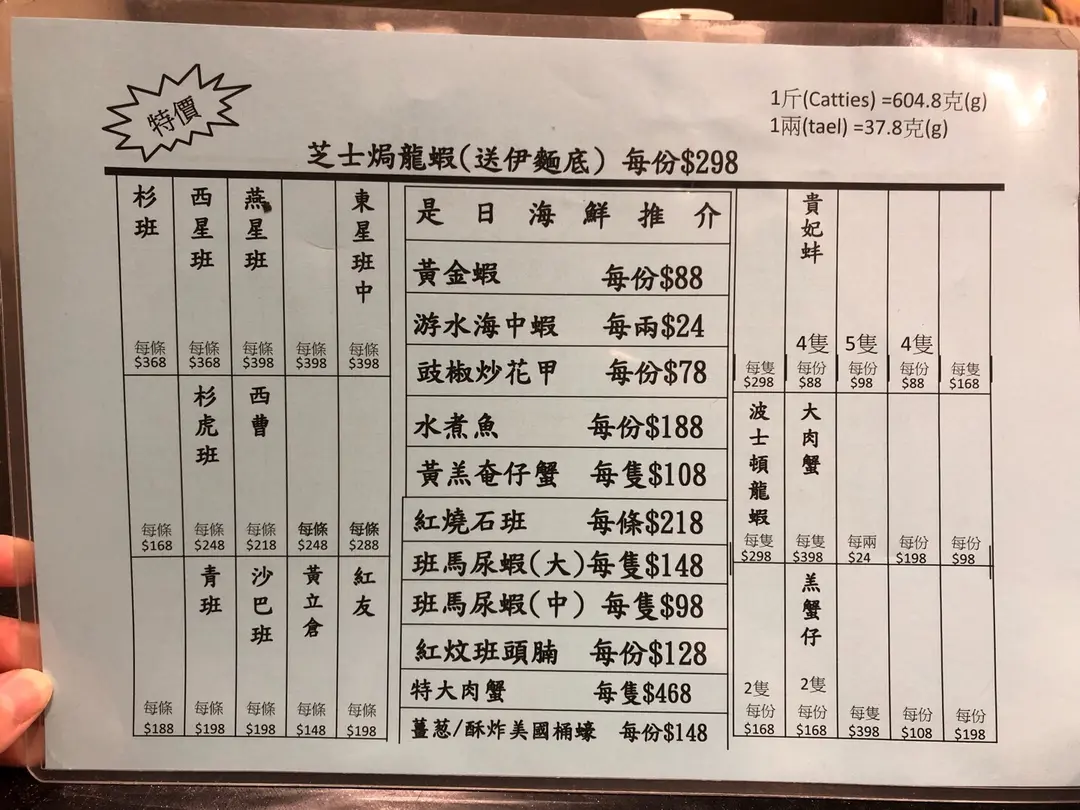 特價
1斤(Catties) =604.8克(g)
1兩(tael) =37.8克(g)
芝士焗龍蝦(送伊麵底) 每份$298
杉班 每條 $368
西星班 每條 $368
燕星班 每條 $398
每條 $398
東星班中 每條 $398
杉虎班
西曹
每條 $168
每條 $248
每條 $218
每條 $248
每條 $288
青班
沙巴班
黃立倉
紅友
每條 $188
每條 $198
每條 $198
每條 $148
每條 $198
是日海鮮推介
黃金蝦 每份$88
游水海中蝦 每兩$24
豉椒炒花甲 每份$78
水煮魚 每份$188
黃羔奄仔蟹 每隻$108
紅燒石班 每條$218
班馬尿蝦(大)每隻$148
班馬尿蝦(中) 每隻$98
紅炆班頭腩 每份$128
特大肉蟹 每隻$468
薑葱/酥炸美國桶蠔 每份$148
每隻 $298
貴妃蚌 4隻 每份 $88
5隻 每份 $98
4隻 每份 $88
每隻 $168
波士頓龍蝦 每隻 $298
大肉蟹 每隻 $398
每兩 $24
每份 $198
每份 $98
2隻 每份 $168
羔蟹仔 2隻 每份 $168
每隻 $398
每份 $108
每份 $198